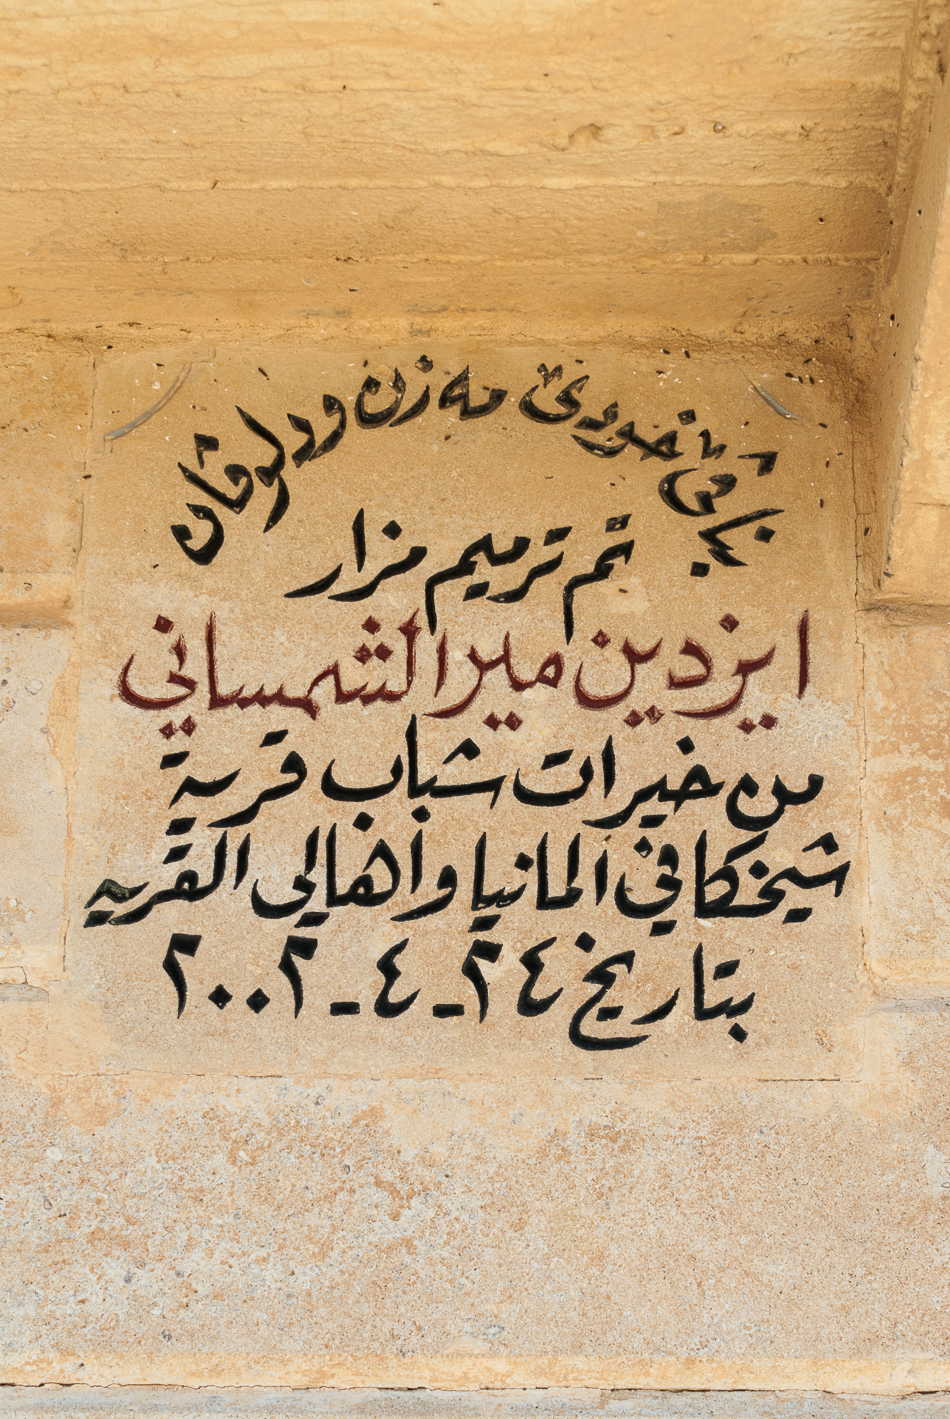 بناڤێ خودێ مه زن ودلوڤان
تم ترميم مزار
ايزدين ميرا الشمساني
من خيرات شباب قرية
شيخكا في المانيا وأهالي القريه
بتاريخ ٢٤ - ٤ - ٢٠٠٢